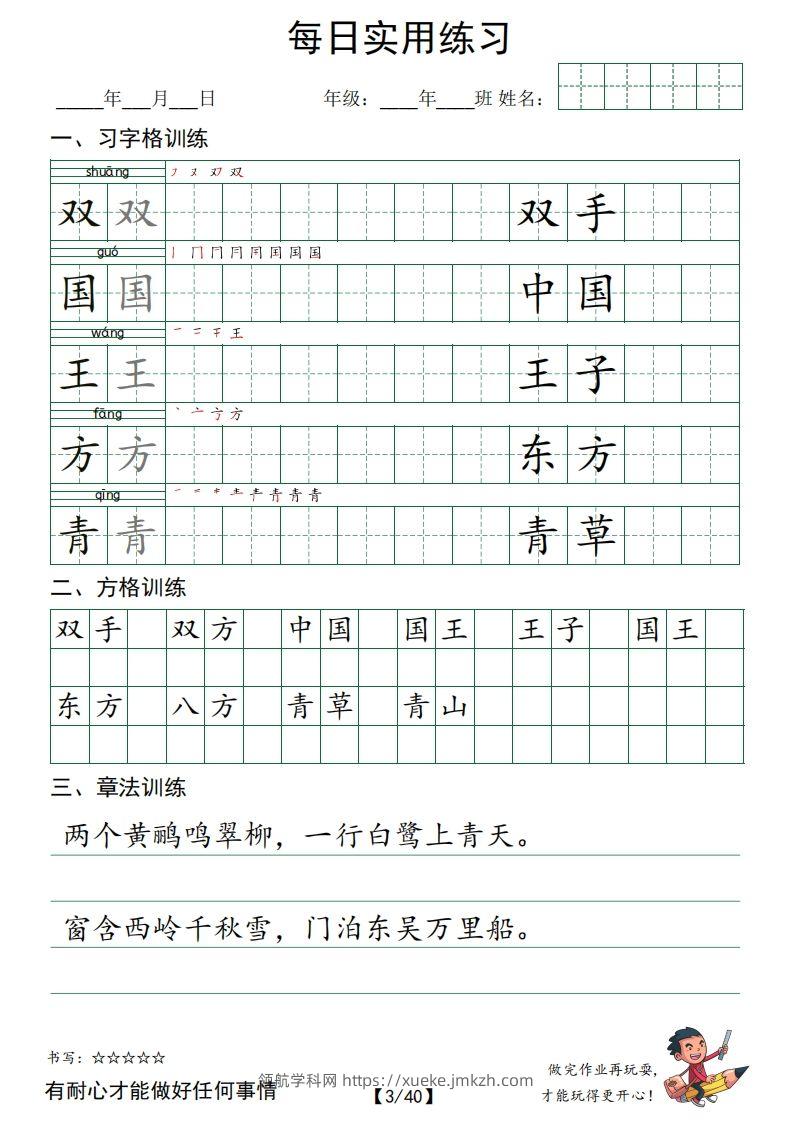 每日实用练习
_____年___月___日 年级：____年____班 姓名：
一、习字格训练
shuāng
双 双 双 手
guó
国 国 中 国
wáng
王 王 王 子
fāng
方 方 东 方
qīng
青 青 青 草
二、方格训练
双 手 双 方 中 国 国 王 王 子 国 王
东 方 八 方 青 草 青 山
三、章法训练
两个黄鹂鸣翠柳，一行白鹭上青天。
窗含西岭千秋雪，门泊东吴万里船。
书写：☆☆☆☆☆
有耐心才能做好任何事情
领航学科网 https://xueke.jmkzh.com
【3/40】
做完作业再玩耍，
才能玩得更开心！